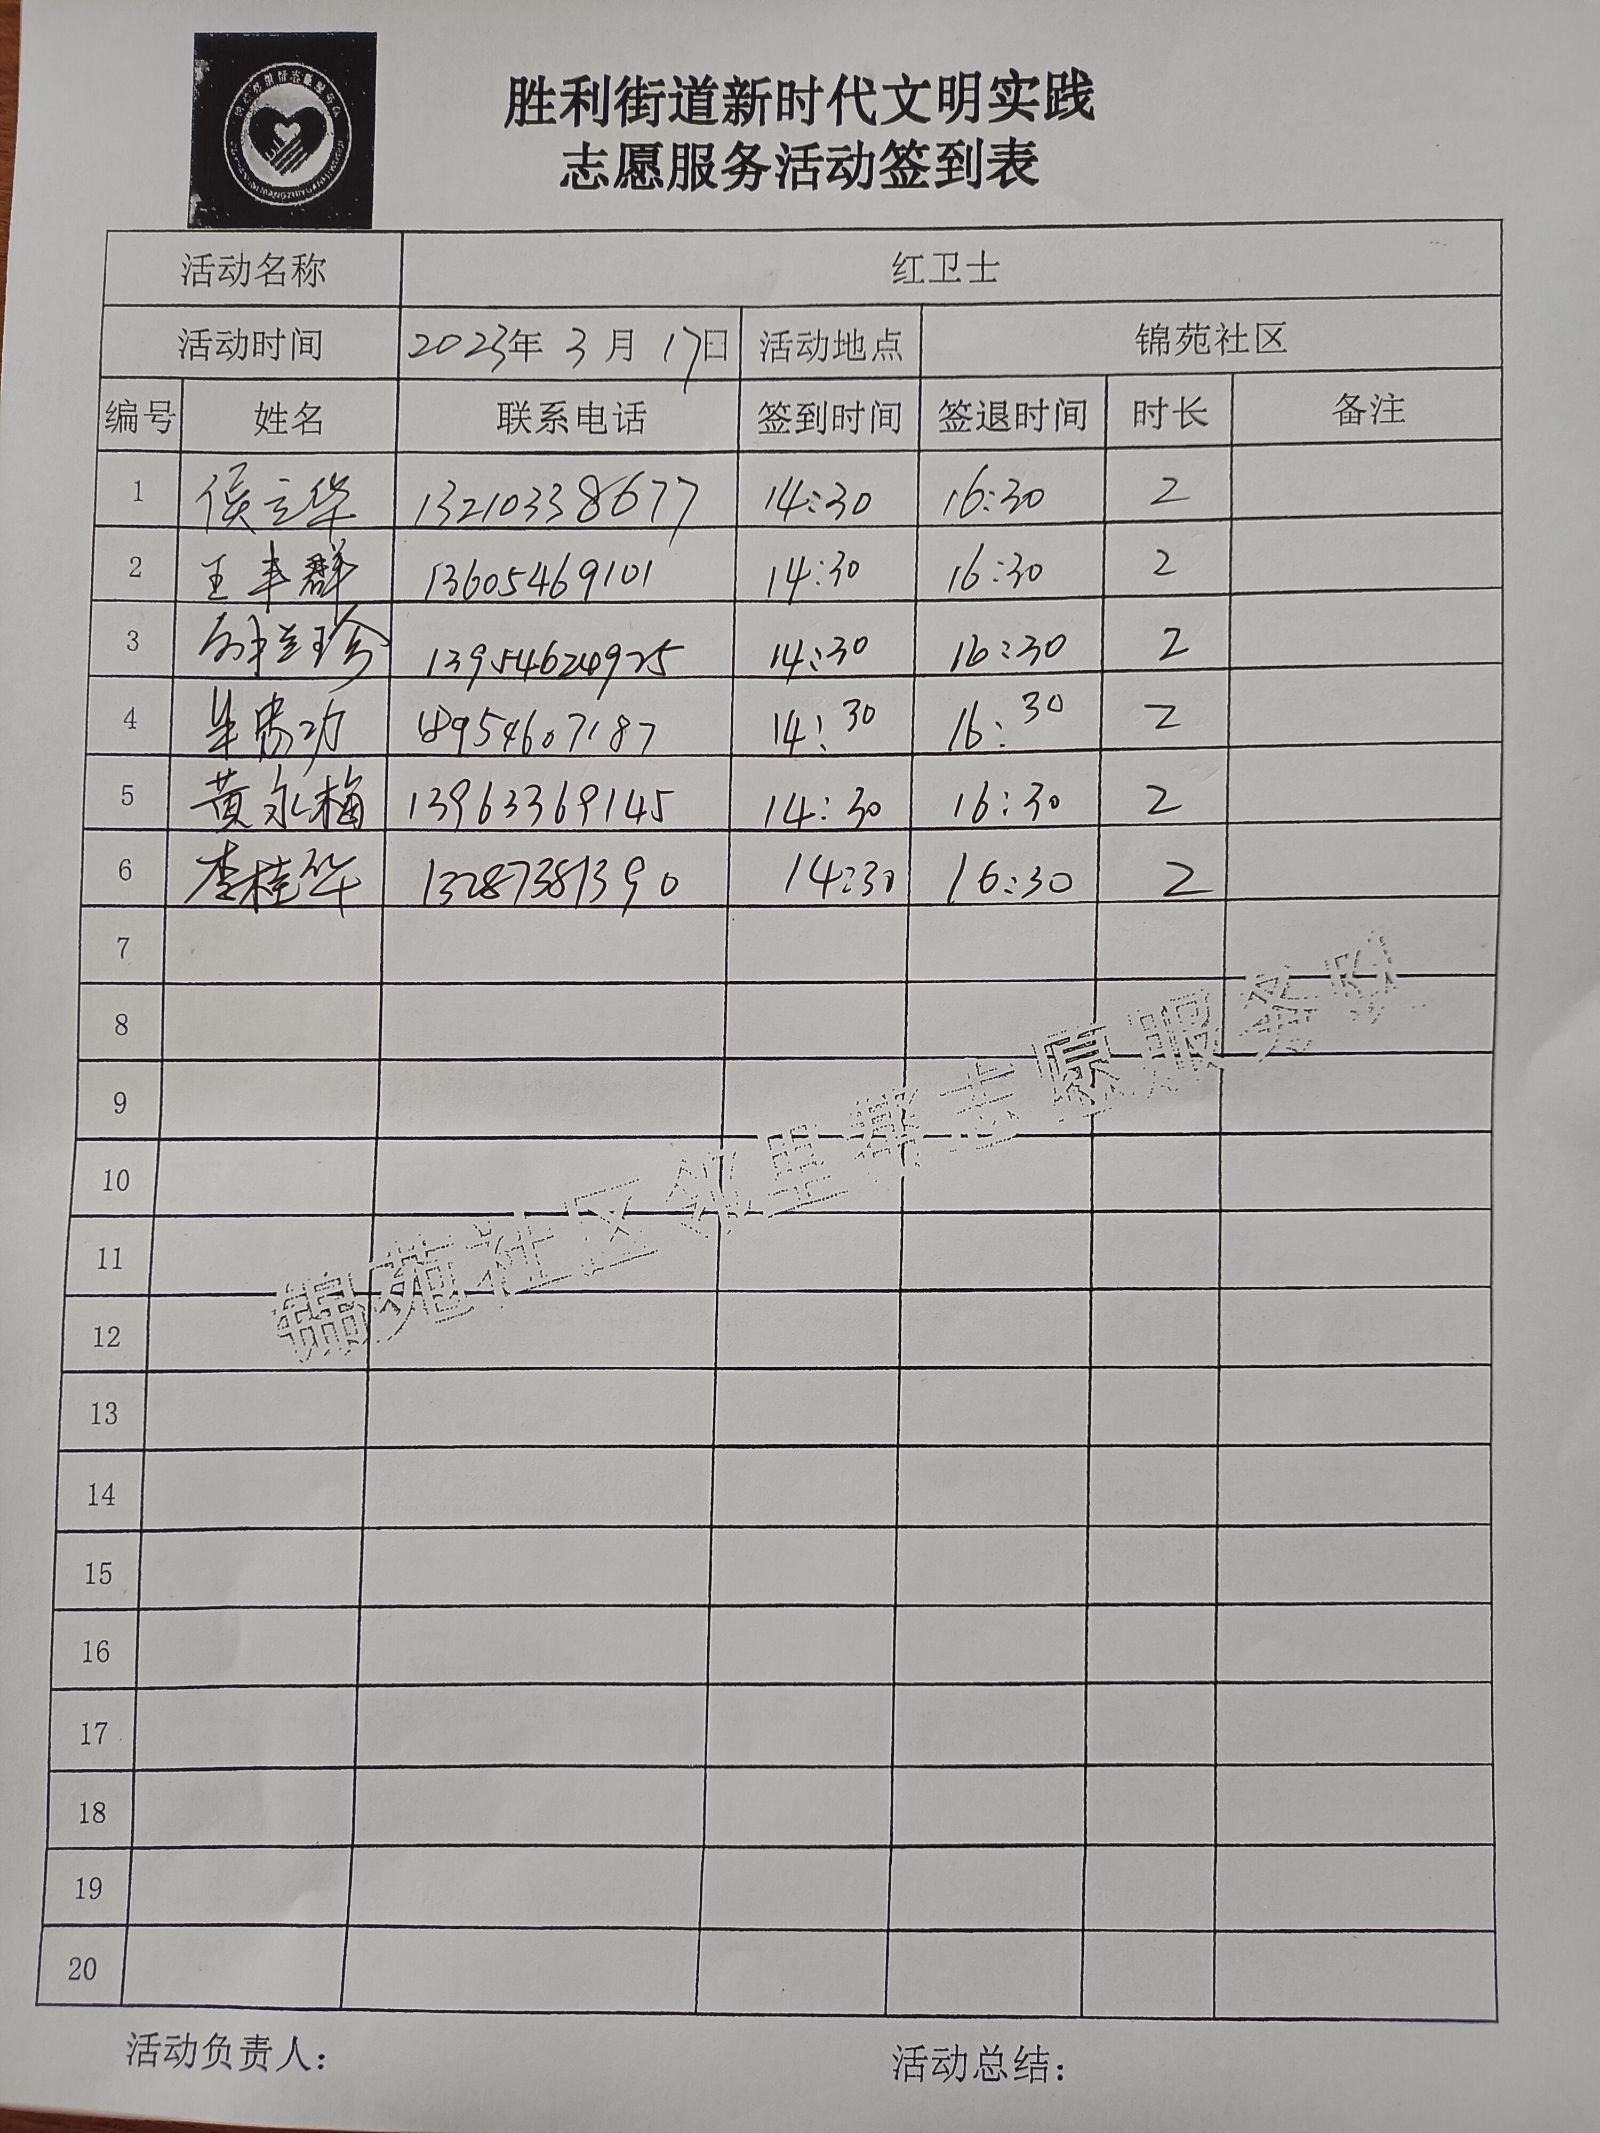 胜利街道新时代文明实践
志愿服务活动签到表
活动名称 红卫士
活动时间 2023年 3月 17日 活动地点 锦苑社区
编号 姓名 联系电话 签到时间 签退时间 时长 备注
1 侯立华 13210338677 14:30 16:30 2
2 王丰群 13605469101 14:30 16:30 2
3 13954624925 14:30 16:30 2
4 18954607187 14:30 16:30 2
5 黄永梅 13963369145 14:30 16:30 2
6 李桂华 13287381390 14:30 16:30 2
7
8
9
10
11
12
13
14
15
16
17
18
19
20
锦苑社区邻里帮志愿服务队
活动负责人: 活动总结: